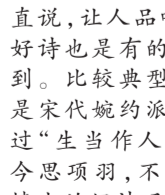 直说，让人品
好诗也是有的
到。比较典型
是宋代婉约派
过“生当作人
今思项羽，不